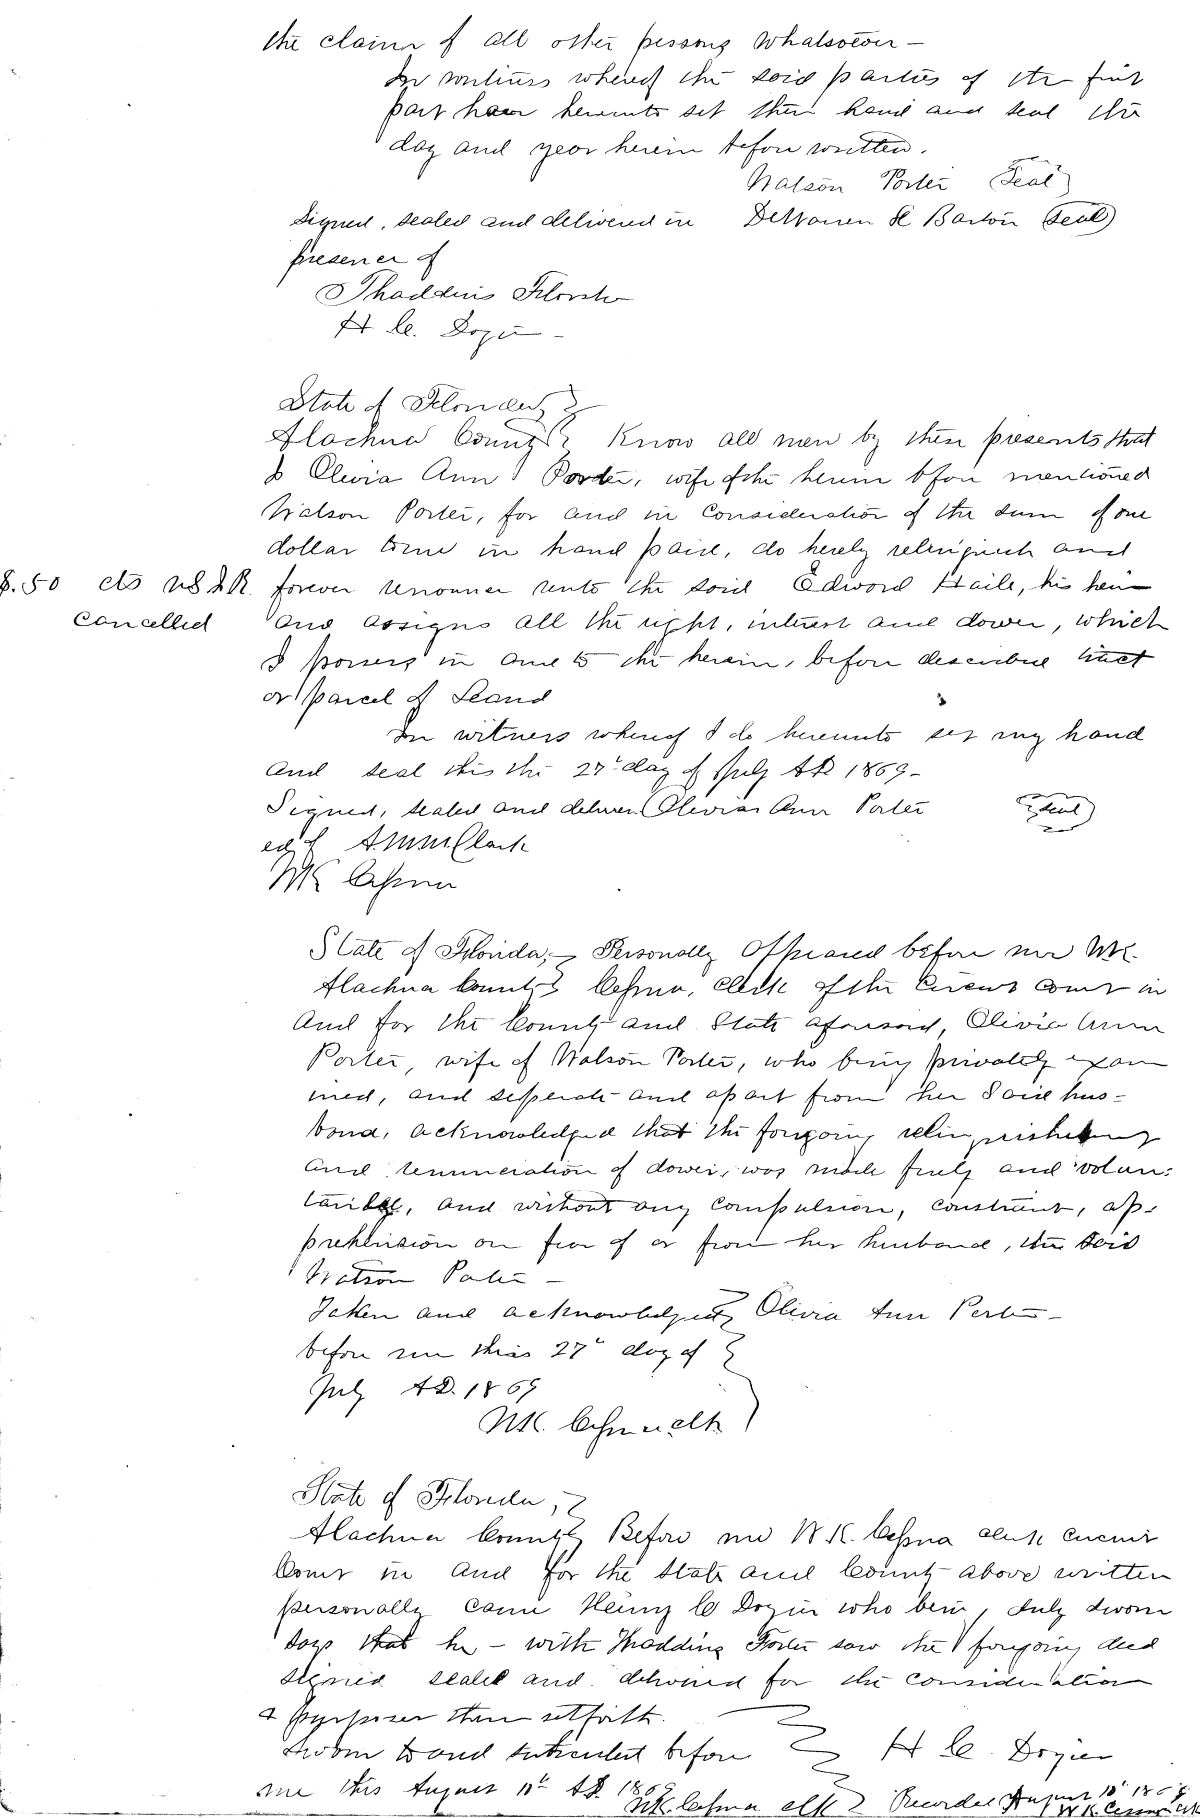 the claim of all other persons whatsoever —
In witness whereof the said parties of the first
part have hereunto set their hand and seal the
day and year herein before written.
Watson Porter (Seal)
Signed, sealed and delivered in Barton (Seal)
presence of
Thaddeus
H C. Dozier —
State of Florida,
Alachua County Know all men by these presents that
I Olivia Ann Porter, wife of the herein before mentioned
Watson Porter, for and in consideration of the sum of one
dollar to me in hand paid, do hereby relinquish and
$.50 cts U S I R. forever renounce unto the said Edward Haile, his heirs
cancelled and assigns all the right, interest and dower, which
I possess in and to the herein, before described tract
or parcel of Land
In witness whereof I do hereunto set my hand
and seal this the 27th day of July AD 1869 —
Signed, sealed and deliver Olivia Ann Porter (Seal)
ed of Clark
WK Cessna
State of Florida, Personally appeared before me WK.
Alachua County Cessna, Clerk of the Circuit Court in
and for the County and State aforesaid, Olivia Ann
Porter, wife of Watson Porter, who being privately exam
ined, and seperate and apart from her said hus-
band, acknowledged that the foregoing relinquishment
and renunciation of dower, was made freely and volun-
tarily, and without any compulsion, constraint, ap-
prehension or fear of or from her husband, the said
Watson Porter —
Taken and acknowledged Olivia Ann Porter —
before me this 27th day of
July AD. 1869
WK. Cessna clk
State of Florida,
Alachua County Before me W K. Cessna clerk circuit
Court in and for the State and County above written
personally came Henry C Dozier who being duly sworn
says that he — with Thaddeus saw the foregoing deed
signed sealed and delivered for the consideration
& purposes therein set forth.
Sworn to and subscribed before H C. Dozier
me this August 10th AD 1869
WK Cessna clk Recorded August 10th 1869
W K Cessna clk